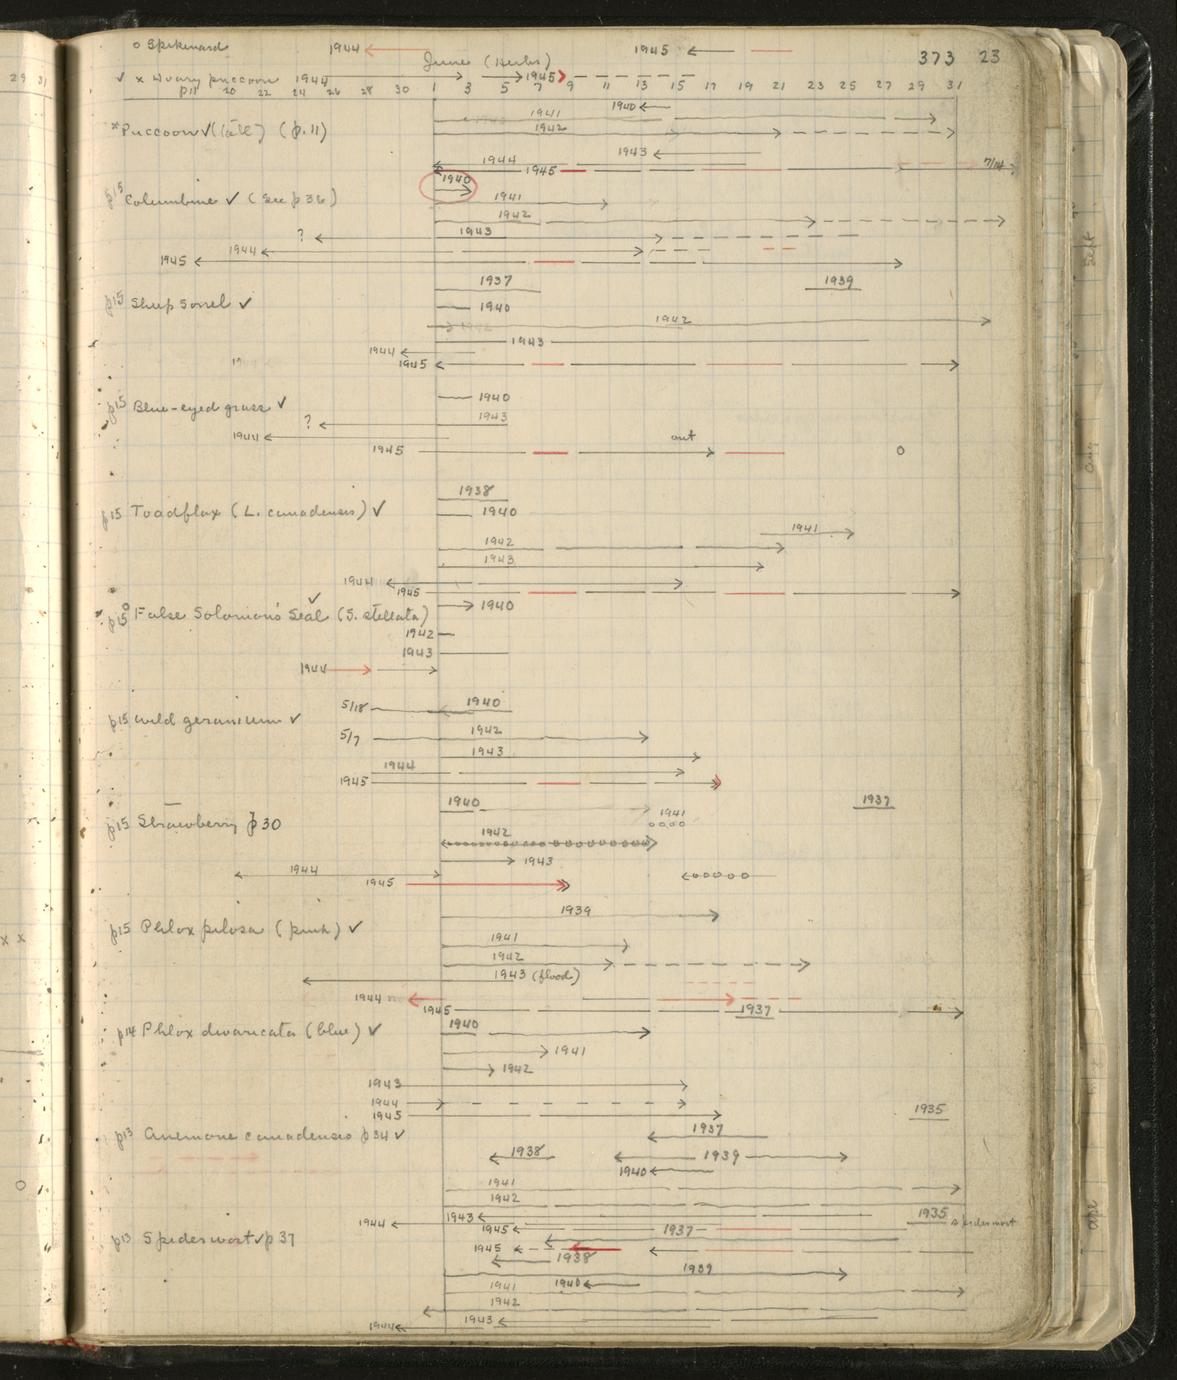 o Spikenard 1944 1945 373 23
June (Herbs)
✓ x Hoary puccoon 1944 1945
p11 20 22 24 26 28 30 1 3 5 7 9 11 13 15 17 19 21 23 25 27 29 31
1940
1941
*Puccoon ✓ (late) (p. 11) 1942
1943
1944 7/14
1945
1940
p15 Columbine ✓ (See p 36) 1941
1942
? 1943
1944
1945
1937 1939
p15 Sheep Sorrel ✓ 1940
1942
1943
1944
1945
p15 Blue-eyed grass ✓ 1940
? 1943
1944 out
1945 o
1938
p15 Toadflax (L. canadensis) ✓ 1940
1941
1942
1943
1944
1945
p15 o False Solomon's Seal (S. stellata) ✓ 1940
1942
1943
1944
5/18 1940
p15 wild geranium ✓
5/7 1942
1943
1944
1945
1940 1937
p15 Strawberry p 30 1941
1942
1943
1944
1945
1939
p15 Phlox pilosa (pink) ✓
1941
1942
1943 (flood)
1944
1945 1937
p14 Phlox divaricata (blue) ✓ 1940
1941
1942
1943
1944
1945 1935
p13 Anemone canadensis p 34 ✓ 1937
1938 1939
1940
1941
1942
1943 1935 spiderwort
1944
1945 1937
p13 Spiderwort ✓ p 37
1945
1938
1939
1941 1940
1942
1943
1944